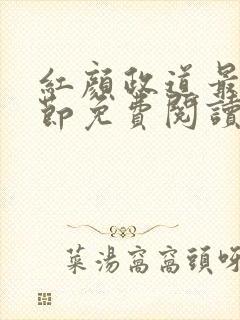 紅顏政道最
節免費閱讀
菜湯窩窩頭呀